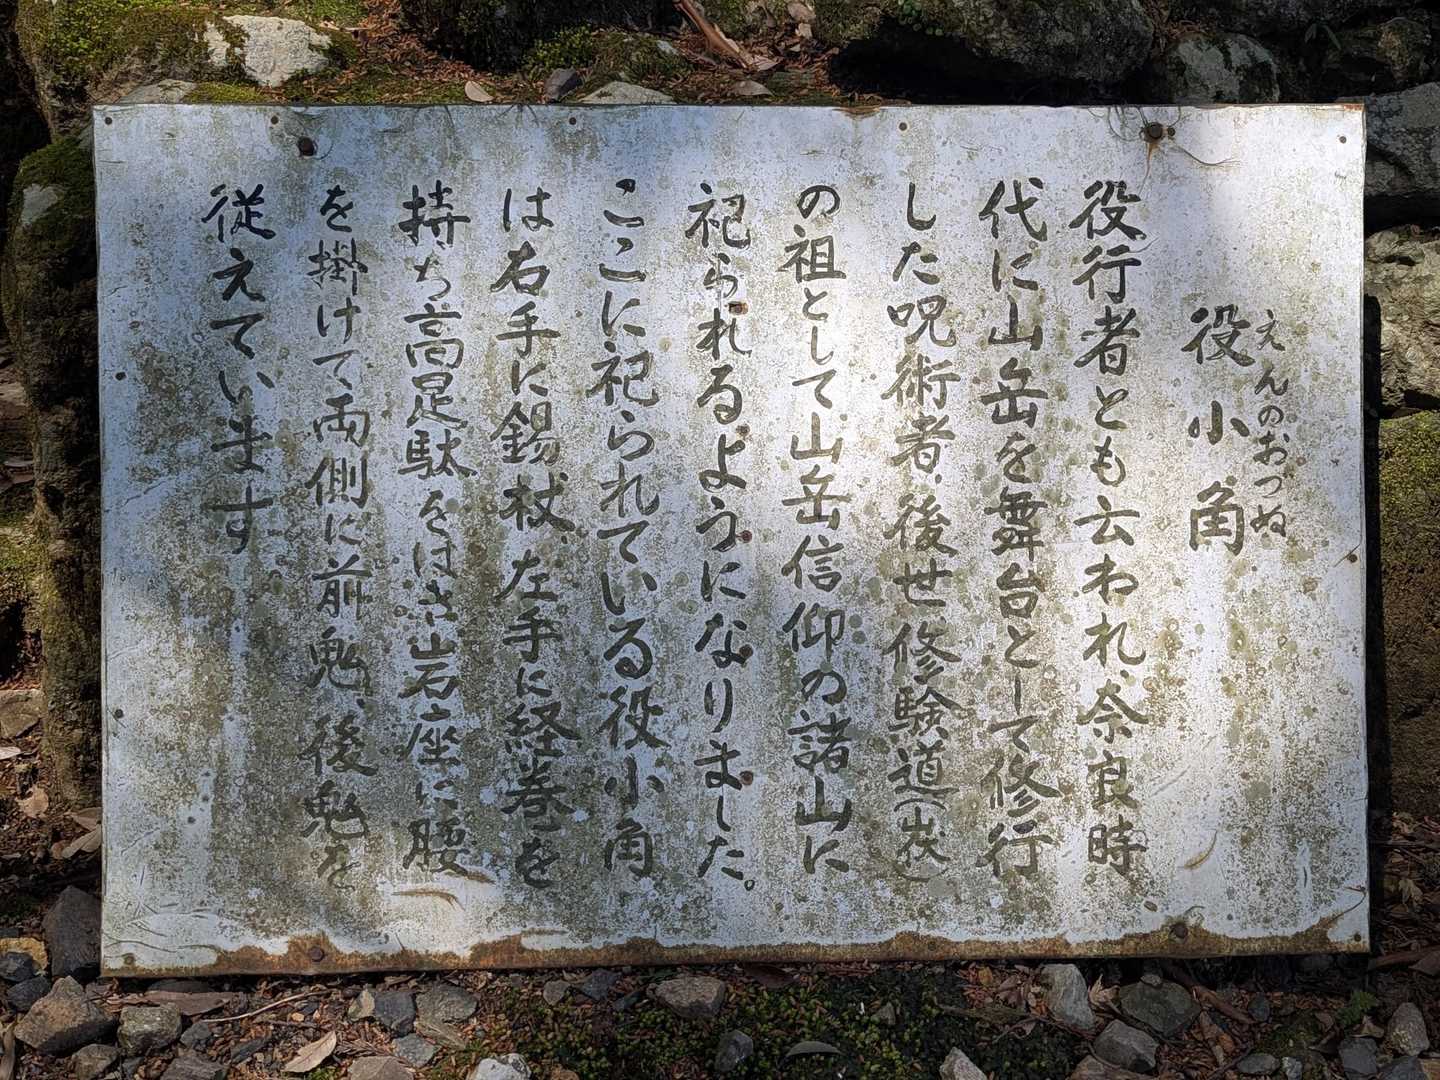 えんのおづぬ
役小角
役行者とも云われ、奈良時
代に山岳を舞台として修行
した呪術者、後世修験道(山伏)
の祖として、山岳信仰の諸山に
祀られるようになりました。
ここに祀られている役小角
は右手に錫杖、左手に経巻を
持ち高足駄をはき岩座に腰
を掛けて、両側に前鬼、後鬼を
従えています